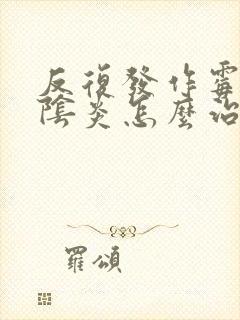 反復發作霉
陰炎怎麼治
羅頌